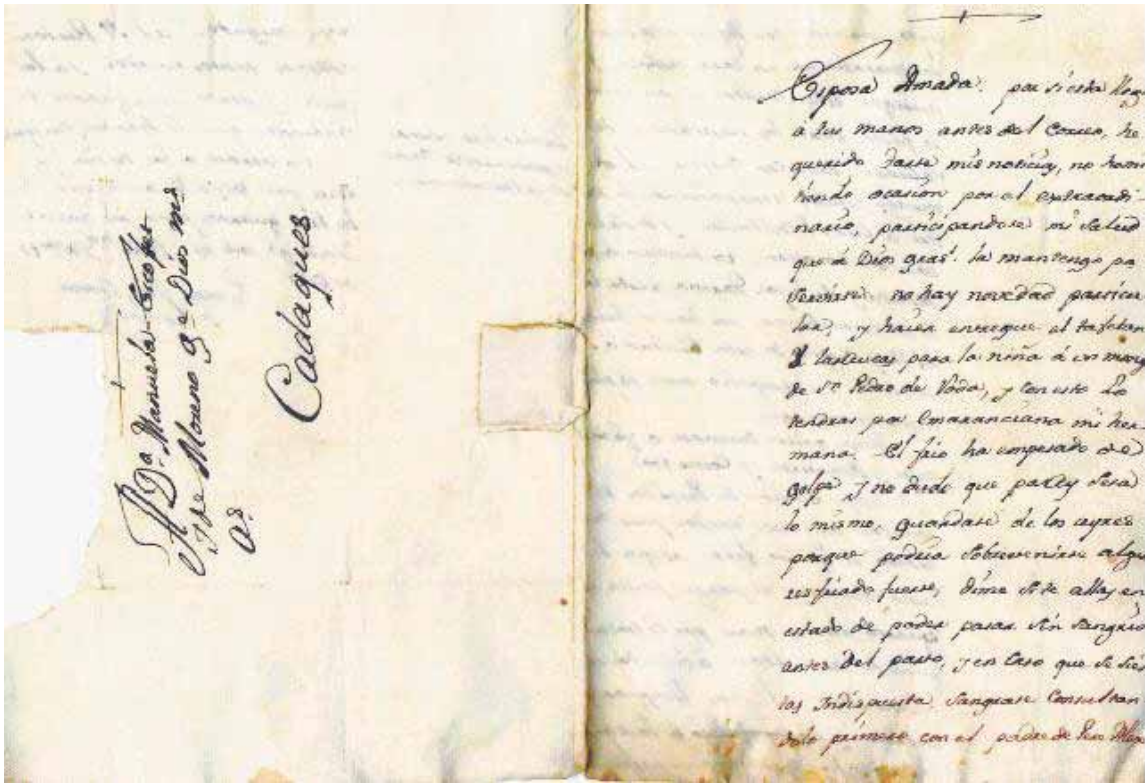 A Dª Manuela
y de Moreno gª Dios mª
aª
Cadaques
Esposa Amada: por si esta lleg
a tus manos antes del Correo, he
querido darte mis noticias, no
ocasión por el extraordi-
nario, participandote mi salud
que á Dios graˢ. la mantengo pª
servirte. no hay novedad particu
lar, y haver entregue el tafetan
y para la niña á un
de Sⁿ Pedro de Roda, y con esto lo
tendras por Emaranciana mi her-
mana. El frio ha empesado de
golpe y no dudo que por ay sera
lo mismo, guardate de los ayres
porque podria sobrevenirte algu
resfriado fuerte, dime si te allas en
estado de poder pasar sin sangria
antes del parto, y en caso que te sien
tas Indispuesta sangrate Consultan
dolo primero con el padre de